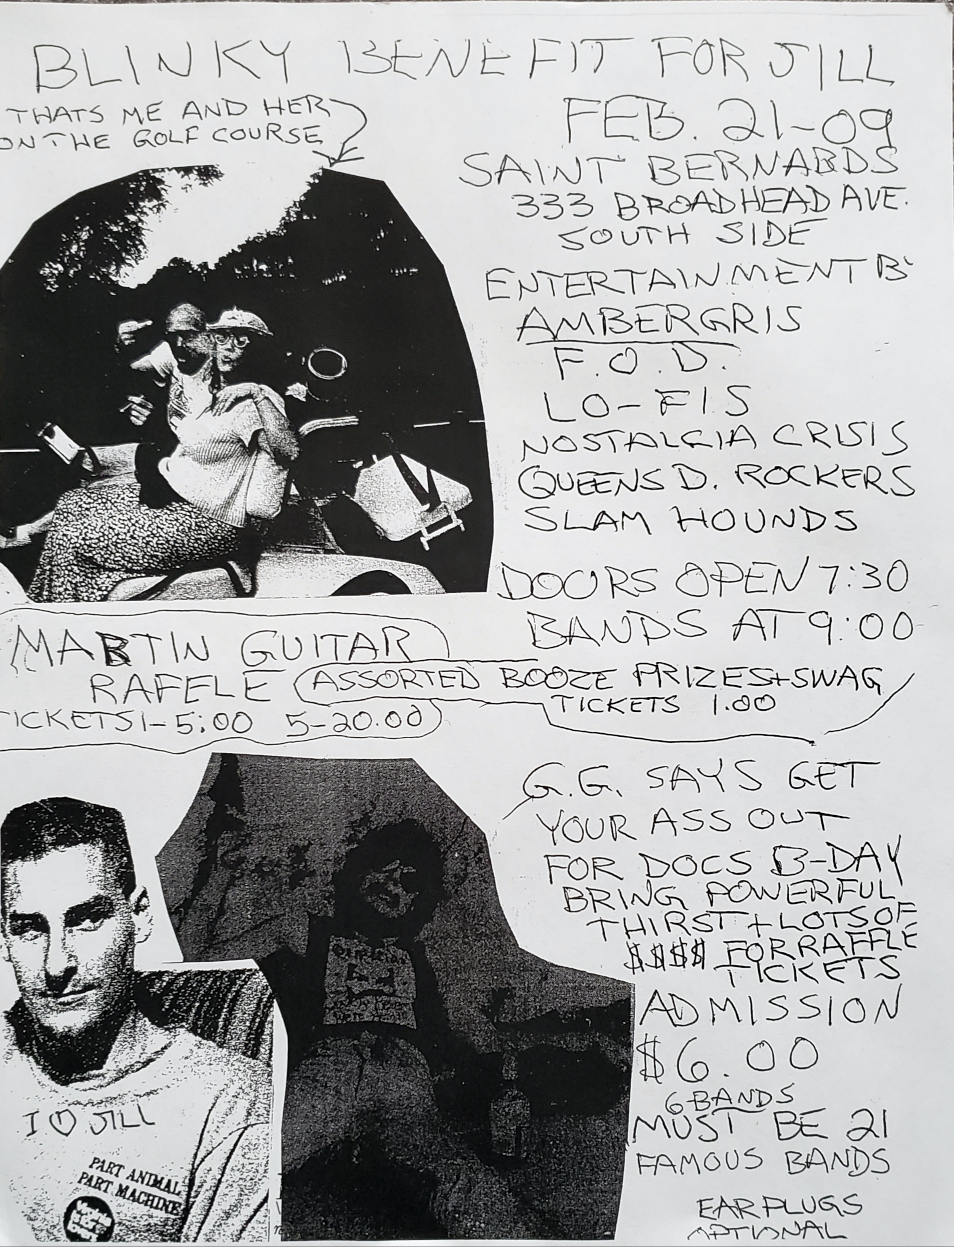 BLINKY BENEFIT FOR JILL
THATS ME AND HER
ON THE GOLF COURSE
FEB. 21-09
SAINT BERNARDS
333 BROADHEAD AVE.
SOUTH SIDE
ENTERTAINMENT BY
AMBERGRIS
F.O.D.
LO-FIS
NOSTALGIA CRISIS
QUEENS D. ROCKERS
SLAM HOUNDS
DOORS OPEN 7:30
BANDS AT 9:00
MARTIN GUITAR
RAFFLE
TICKETS 1-5:00 5-20.00
ASSORTED BOOZE PRIZES+SWAG
TICKETS 1.00
G.G. SAYS GET
YOUR ASS OUT
FOR DOCS B-DAY
BRING POWERFUL
THIRST + LOTS OF
$$$$ FOR RAFFLE
TICKETS
ADMISSION
$6.00
6 BANDS
MUST BE 21
FAMOUS BANDS
EAR PLUGS
OPTIONAL
I ♡ JILL
PART ANIMAL
PART MACHINE